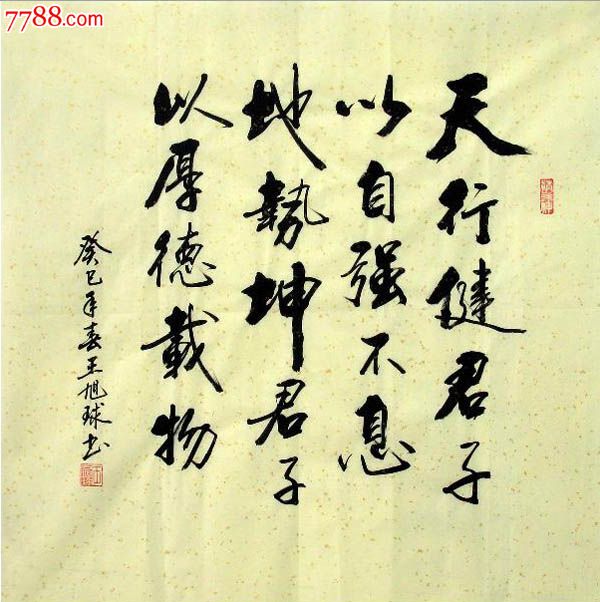 7788.com
天行健君子
以自强不息
地勢坤君子
以厚德載物
癸巳年春王旭球书